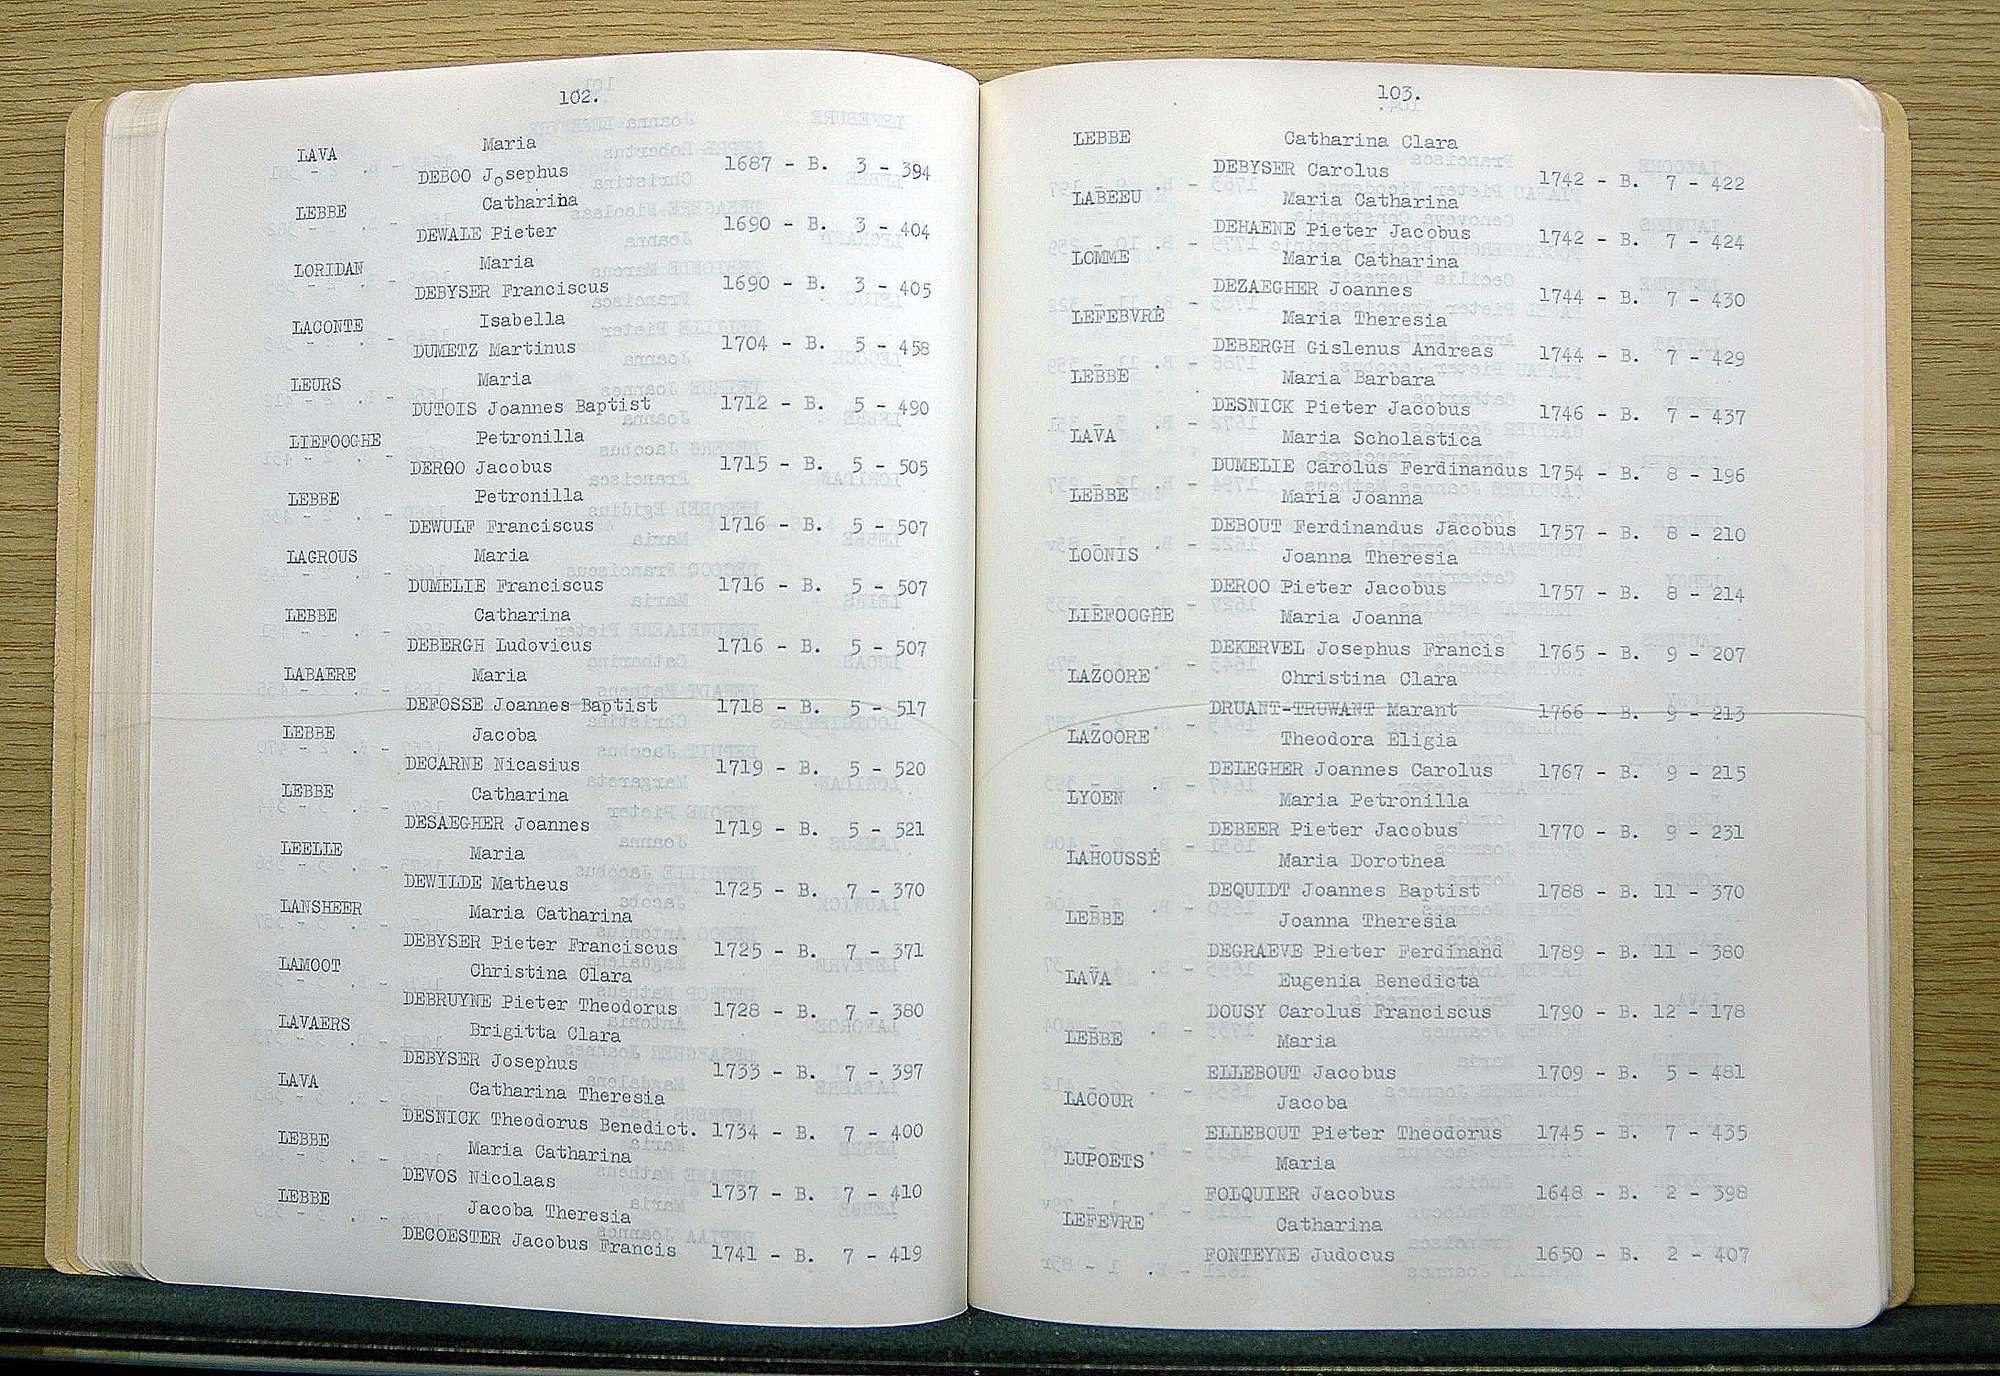 102.
LAVA Maria
DEBOO Josephus 1687 - B. 3 - 394
LEBBE Catharina
DEWALE Pieter 1690 - B. 3 - 404
LORIDAN Maria
DEBYSER Franciscus 1690 - B. 3 - 405
LACONTE Isabella
DUMETZ Martinus 1704 - B. 5 - 458
LEURS Maria
DUTOIS Joannes Baptist 1712 - B. 5 - 490
LIEFOOGHE Petronilla
DEROO Jacobus 1715 - B. 5 - 505
LEBBE Petronilla
DEWULF Franciscus 1716 - B. 5 - 507
LAGROUS Maria
DUMELIE Franciscus 1716 - B. 5 - 507
LEBBE Catharina
DEBERGH Ludovicus 1716 - B. 5 - 507
LABAERE Maria
DEFOSSE Joannes Baptist 1718 - B. 5 - 517
LEBBE Jacoba
DECARNE Nicasius 1719 - B. 5 - 520
LEBBE Catharina
DESAEGHER Joannes 1719 - B. 5 - 521
LEELLE Maria
DEWILDE Matheus 1725 - B. 7 - 370
LANSHEER Maria Catharina
DEBYSER Pieter Franciscus 1725 - B. 7 - 371
LAMOOT Christina Clara
DEBRUYNE Pieter Theodorus 1728 - B. 7 - 380
LAVAERS Brigitta Clara
DEBYSER Josephus 1733 - B. 7 - 397
LAVA Catharina Theresia
DESNICK Theodorus Benedict. 1734 - B. 7 - 400
LEBBE Maria Catharina
DEVOS Nicolaas 1737 - B. 7 - 410
LEBBE Jacoba Theresia
DECOESTER Jacobus Francis 1741 - B. 7 - 419
103.
LEBBE Catharina Clara
DEBYSER Carolus 1742 - B. 7 - 422
LABEEU Maria Catharina
DEHAENE Pieter Jacobus 1742 - B. 7 - 424
LOMME Maria Catharina
DEZAEGHER Joannes 1744 - B. 7 - 430
LEFEBVRE Maria Theresia
DEBERGH Gislenus Andreas 1744 - B. 7 - 429
LEBBE Maria Barbara
DESNICK Pieter Jacobus 1746 - B. 7 - 437
LAVA Maria Scholastica
DUMELIE Carolus Ferdinandus 1754 - B. 8 - 196
LEBBE Maria Joanna
DEBOUT Ferdinandus Jacobus 1757 - B. 8 - 210
LOONIS Joanna Theresia
DEROO Pieter Jacobus 1757 - B. 8 - 214
LIEFOOGHE Maria Joanna
DEKERVEL Josephus Francis 1765 - B. 9 - 207
LAZOORE Christina Clara
DRUANT-TRUWANT Marant 1766 - B. 9 - 213
LAZOORE Theodora Eligia
DELEGHER Joannes Carolus 1767 - B. 9 - 215
LYOEN Maria Petronilla
DEBEER Pieter Jacobus 1770 - B. 9 - 231
LAHOUSSE Maria Dorothea
DEQUIDT Joannes Baptist 1788 - B. 11 - 370
LEBBE Joanna Theresia
DEGRAEVE Pieter Ferdinand 1789 - B. 11 - 380
LAVA Eugenia Benedicta
DOUSY Carolus Franciscus 1790 - B. 12 - 178
LEBBE Maria
ELLEBOUT Jacobus 1709 - B. 5 - 481
LACOUR Jacoba
ELLEBOUT Pieter Theodorus 1745 - B. 7 - 435
LUPOETS Maria
FOLQUIER Jacobus 1648 - B. 2 - 398
LEFEVRE Catharina
FONTEYNE Judocus 1650 - B. 2 - 407